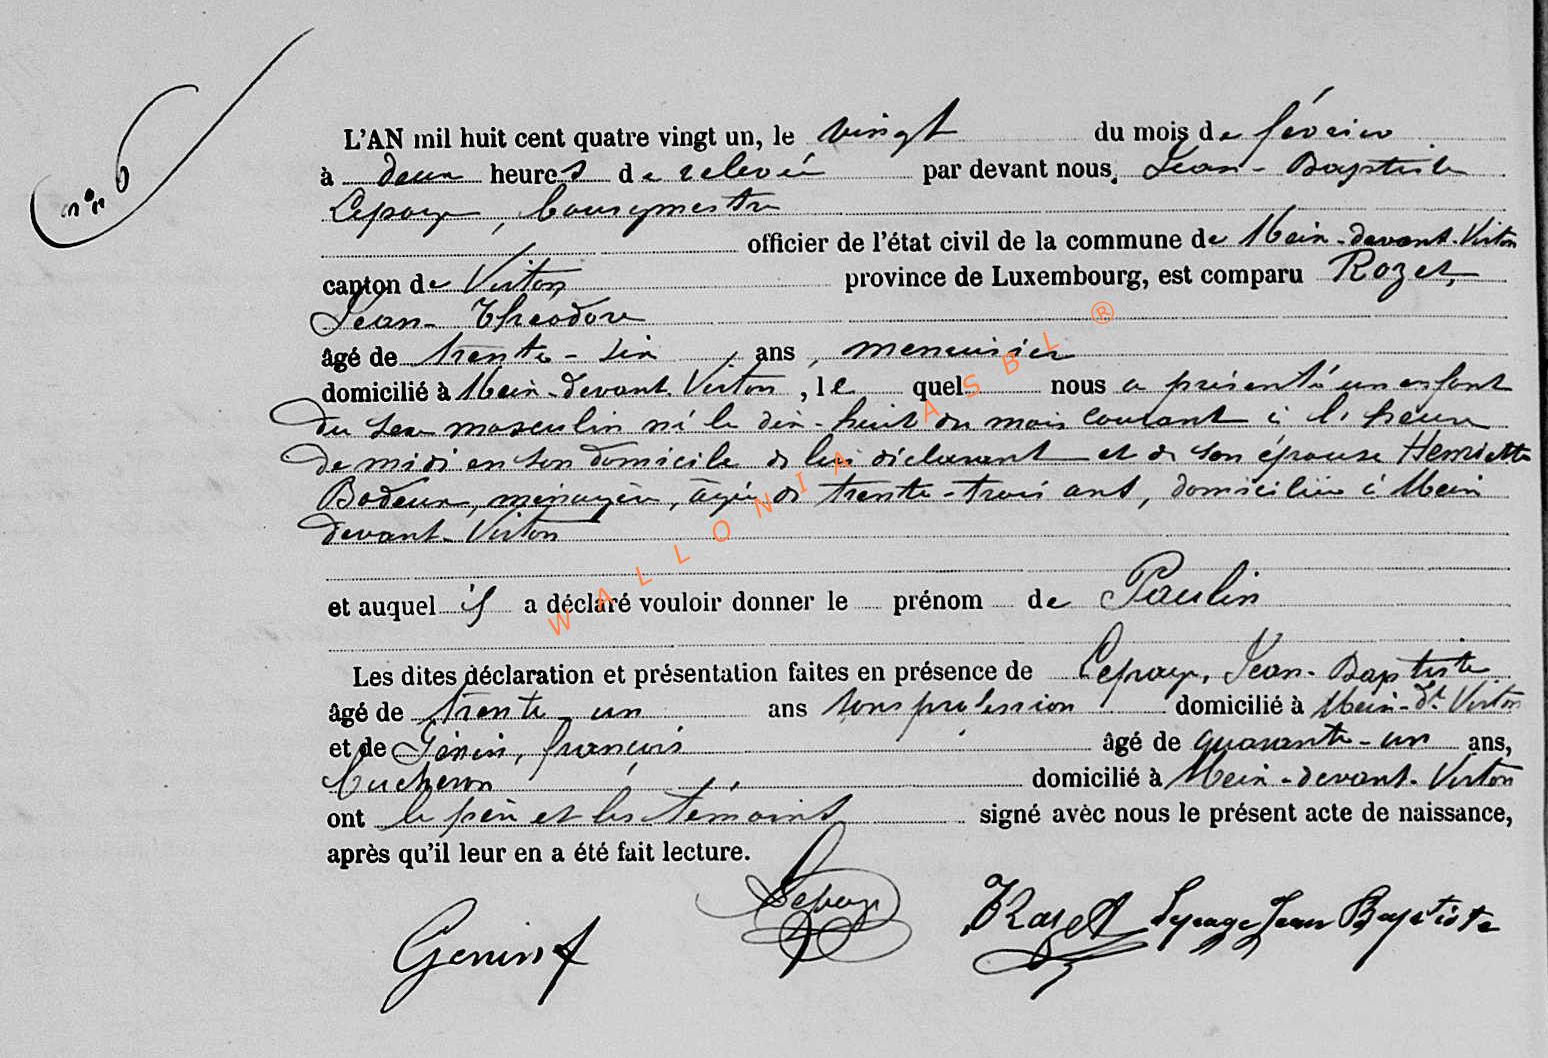 n° 6
L'AN mil huit cent quatre vingt un, le vingt du mois de février
à deux heures de relevée par devant nous, Jean-Baptiste
Lepage, bourgmestre
officier de l'état civil de la commune de Meix-devant-Virton
canton de Virton province de Luxembourg, est comparu Rozet,
Jean-Théodore
âgé de trente-six ans, menuisier
domicilié à Meix-devant-Virton, le quel nous a présenté un enfant
du sexe masculin né le dix-huit du mois courant à l'heure
de midi en son domicile de lui déclarant et de son épouse Henriette
Bodeux, ménagère, âgée de trente-trois ans, domiciliée à Meix
devant-Virton
et auquel il a déclaré vouloir donner le prénom de Paulin
Les dites déclaration et présentation faites en présence de Lepage, Jean-Baptiste
âgé de trente un ans sans profession domicilié à Meix-dt Virton
et de Génin, françois âgé de quarante-un ans,
bucheron domicilié à Meix-devant-Virton
ont le père et les témoins signé avèc nous le présent acte de naissance,
après qu'il leur en a été fait lecture.
Genin f Lepage Rozet Lepage Jean Baptiste
WALLONIA ASBL ®